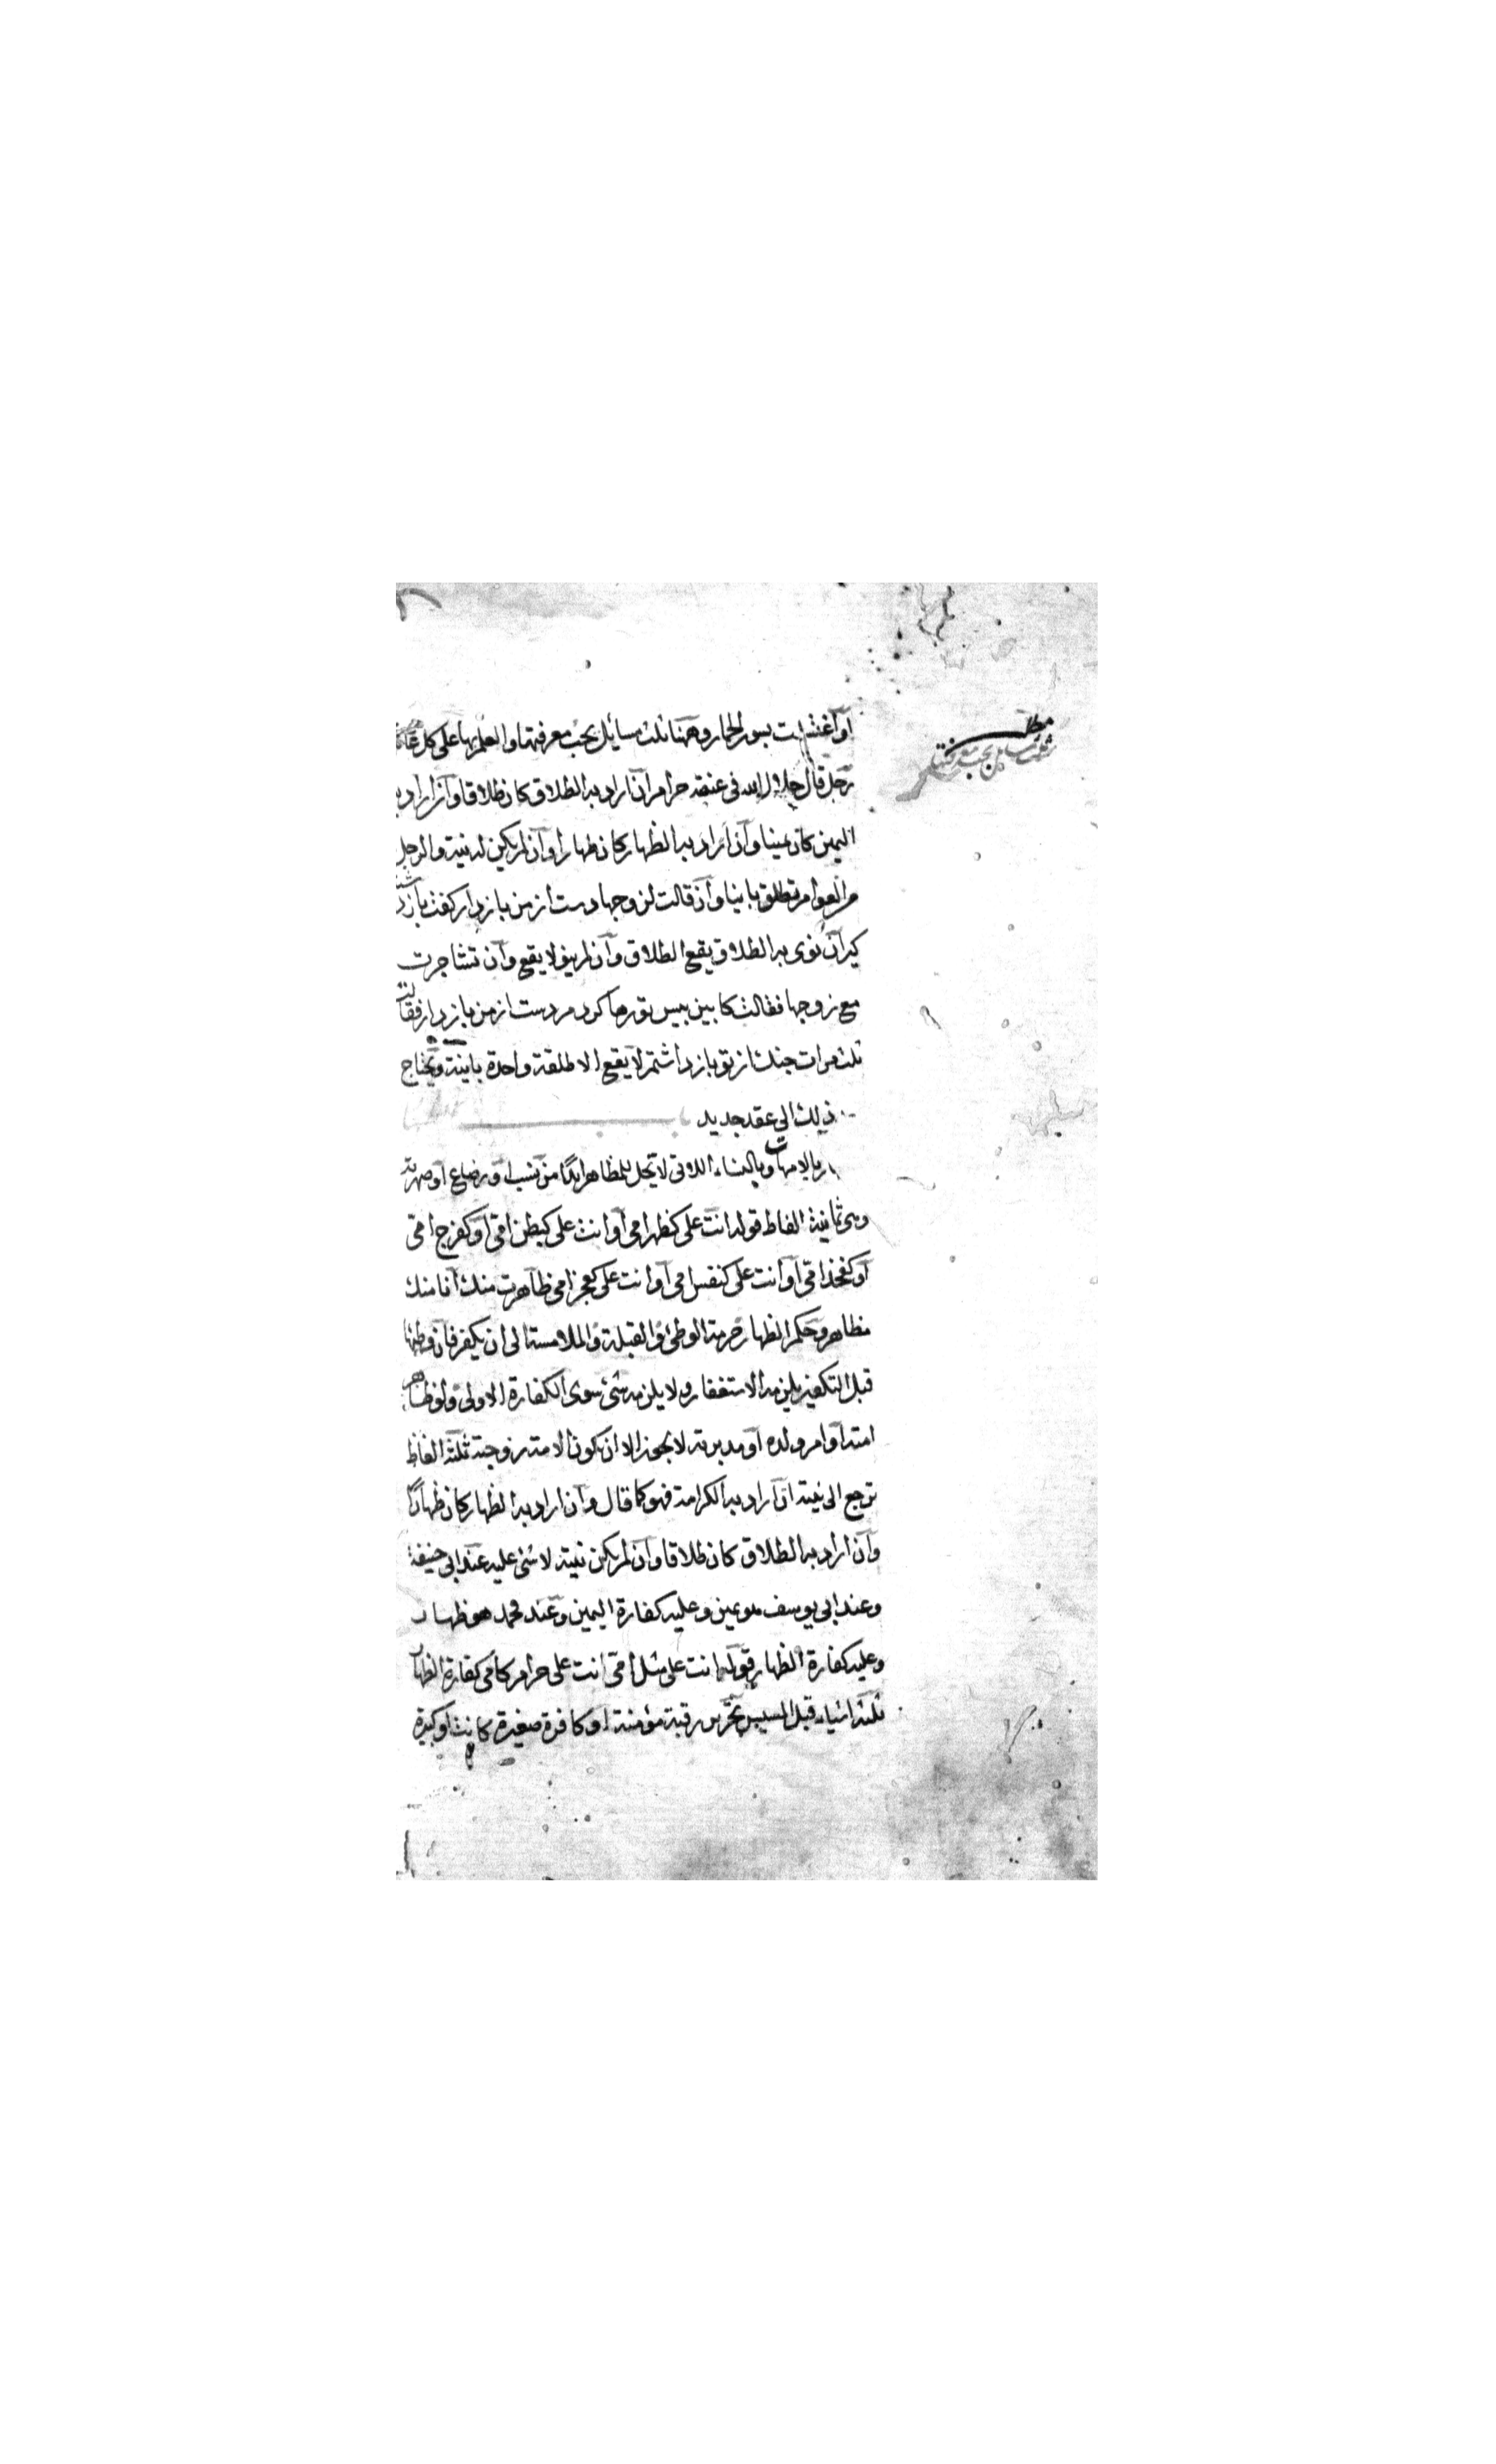 او اغتسلت بسور الحمار وههنا ثلث مسايل يجب معرفتها والعلم بها على كل
رجل قال حلال الله في عنقه حرام ان اراد به الطلاق كان طلاقا وان اراد به
اليمين كان يمينا وان اراد به الظهار كان ظهارا وان لم يكن له نية والرجل
من العوام تطلق باينا وان قالت لزوجها دست از من باز دار كفت باز
كير ان نوى به الطلاق يقع الطلاق وان لم ينو لا يقع وان تشاجرت
مع زوجها فقالت كابين بيس تو رها كردم دست از من باز دار فقالت
ثلث مرات جنك از تو باز داشتم لا يقع الا طلقة واحدة باينة ويحتاج
ذلك الى عقد جديد
بالامهات وبالنساء اللاتي لا تحل للمظاهر ابدا من نسب او رضاع او صهرية
وهي ثمانية الفاظ قوله انت علي كظهر امي او انت علي كبطن امي او كفرج امي
او كفخذ امي او انت علي كنفس امي او انت علي كعجز امي ظاهرت منك انا منك
مظاهر وحكم الظهار حرمة الوطئ والقبلة والملامسة الى ان يكفر فان وطئها
قبل التكفير يلزمه الاستغفار ولا يلزمه شئ سوى الكفارة الاولى ولو ظاهر
امته او ام ولده او مدبرته لا يجوز الا ان يكون الامة زوجته ثلثة الفاظ
ترجع الى نيته ان اراد به الكرامة فهو كما قال وان اراد به الظهار كان ظهارا
وان اراد به الطلاق كان طلاقا وان لم يكن نيته لا شئ عليه عند ابي حنيفة
وعند ابي يوسف هو يمين وعليه كفارة اليمين وعند محمد هو ظهار
وعليه كفارة الظهار قوله انت علي مثل امي انت علي حرام كامي كفارة الظهار
ثلثة اشياء قبل المسيس تحرير رقبة مؤمنة او كافرة صغيرة كانت او كبيرة
مطلب
ثلث مسايل يجب معرفتها